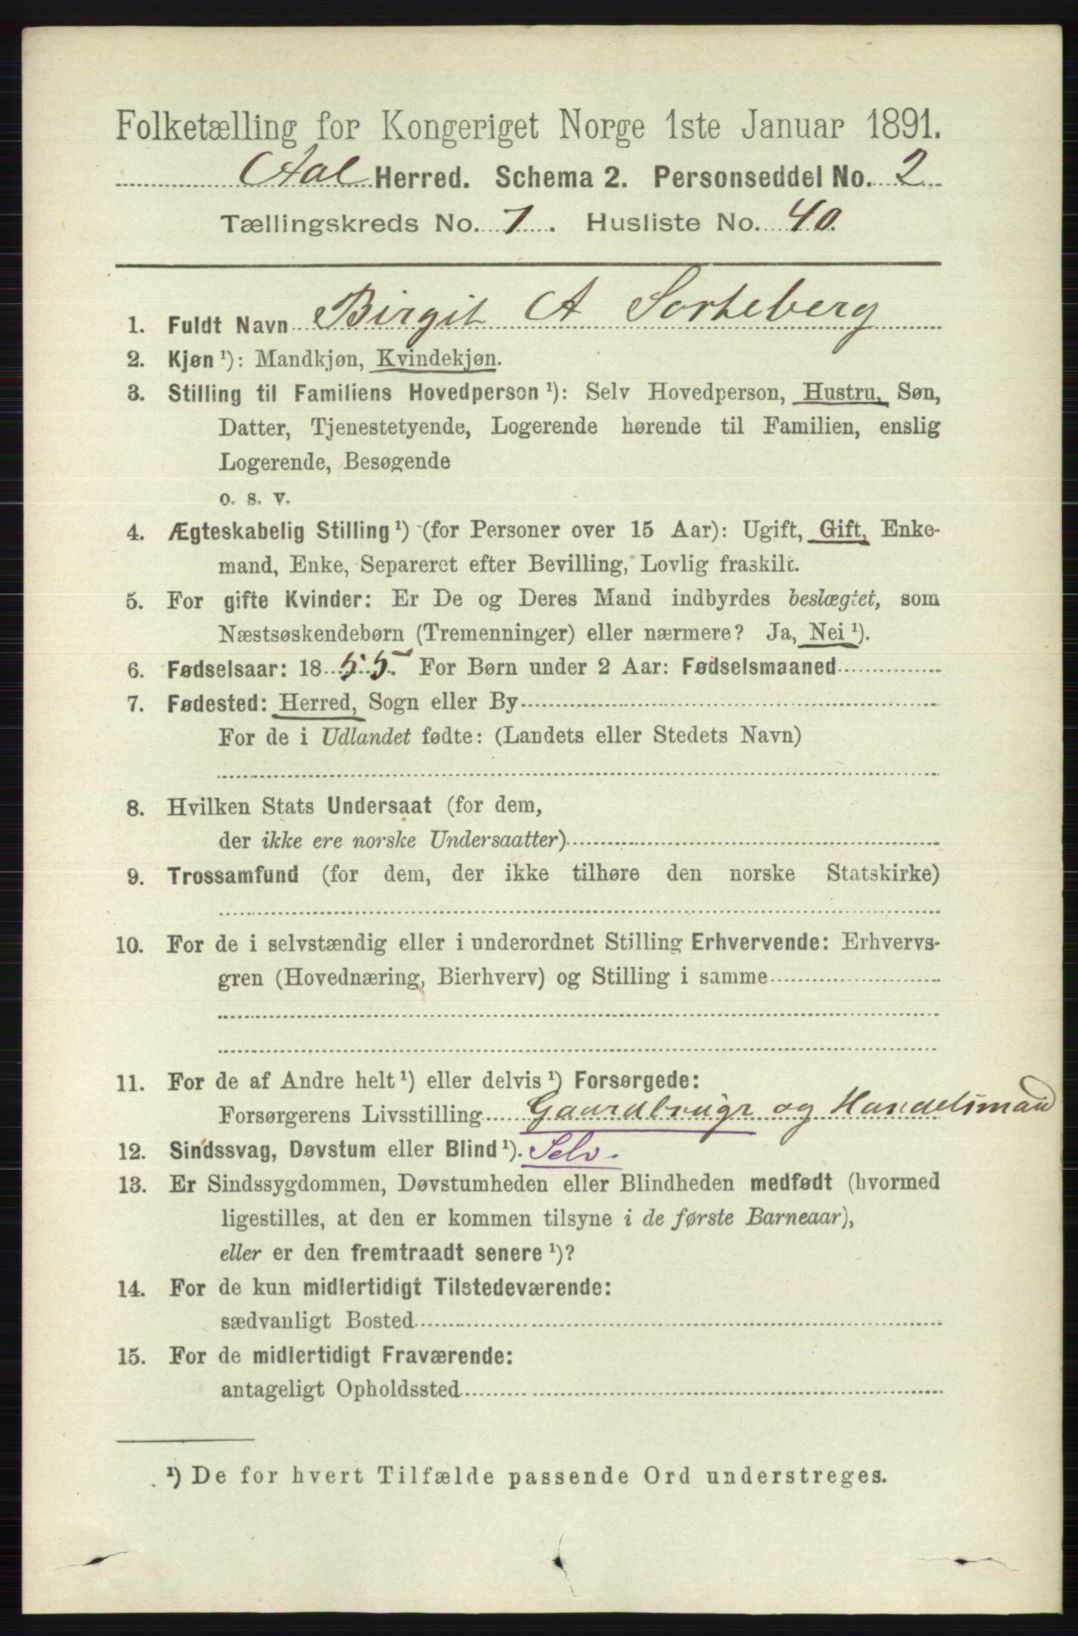 Folketælling for Kongeriget Norge 1ste Januar 1891.
Aal Herred. Schema 2. Personseddel No. 2
Tællingskreds No. 7. Husliste No. 40.
1. Fuldt Navn Birgit A Sorteberg
2. Kjøn ¹): Mandkjøn, Kvindekjøn.
3. Stilling til Familiens Hovedperson ¹): Selv Hovedperson, Hustru, Søn,
Datter, Tjenestetyende, Logerende hørende til Familien, enslig
Logerende, Besøgende
o. s. v.
4. Ægteskabelig Stilling ¹) (for Personer over 15 Aar): Ugift, Gift, Enke-
mand, Enke, Separeret efter Bevilling, Lovlig fraskilt.
5. For gifte Kvinder: Er De og Deres Mand indbyrdes beslægtet, som
Næstsøskendebørn (Tremenninger) eller nærmere? Ja, Nei ¹).
6. Fødselsaar: 1855. For Børn under 2 Aar: Fødselsmaaned
7. Fødested: Herred, Sogn eller By
For de i Udlandet fødte: (Landets eller Stedets Navn)
8. Hvilken Stats Undersaat (for dem,
der ikke ere norske Undersaatter)
9. Trossamfund (for dem, der ikke tilhøre den norske Statskirke)
10. For de i selvstændig eller i underordnet Stilling Erhvervende: Erhvervs-
gren (Hovednæring, Bierhverv) og Stilling i samme
11. For de af Andre helt ¹) eller delvis ¹) Forsørgede:
Forsørgerens Livsstilling Gaardbrugr og Handelsmand
12. Sindssvag, Døvstum eller Blind ¹). Selv.
13. Er Sindssygdommen, Døvstumheden eller Blindheden medfødt (hvormed
ligestilles, at den er kommen tilsyne i de første Barneaar),
eller er den fremtraadt senere ¹)?
14. For de kun midlertidigt Tilstedeværende:
sædvanligt Bosted
15. For de midlertidigt Fraværende:
antageligt Opholdssted
¹) De for hvert Tilfælde passende Ord understreges.